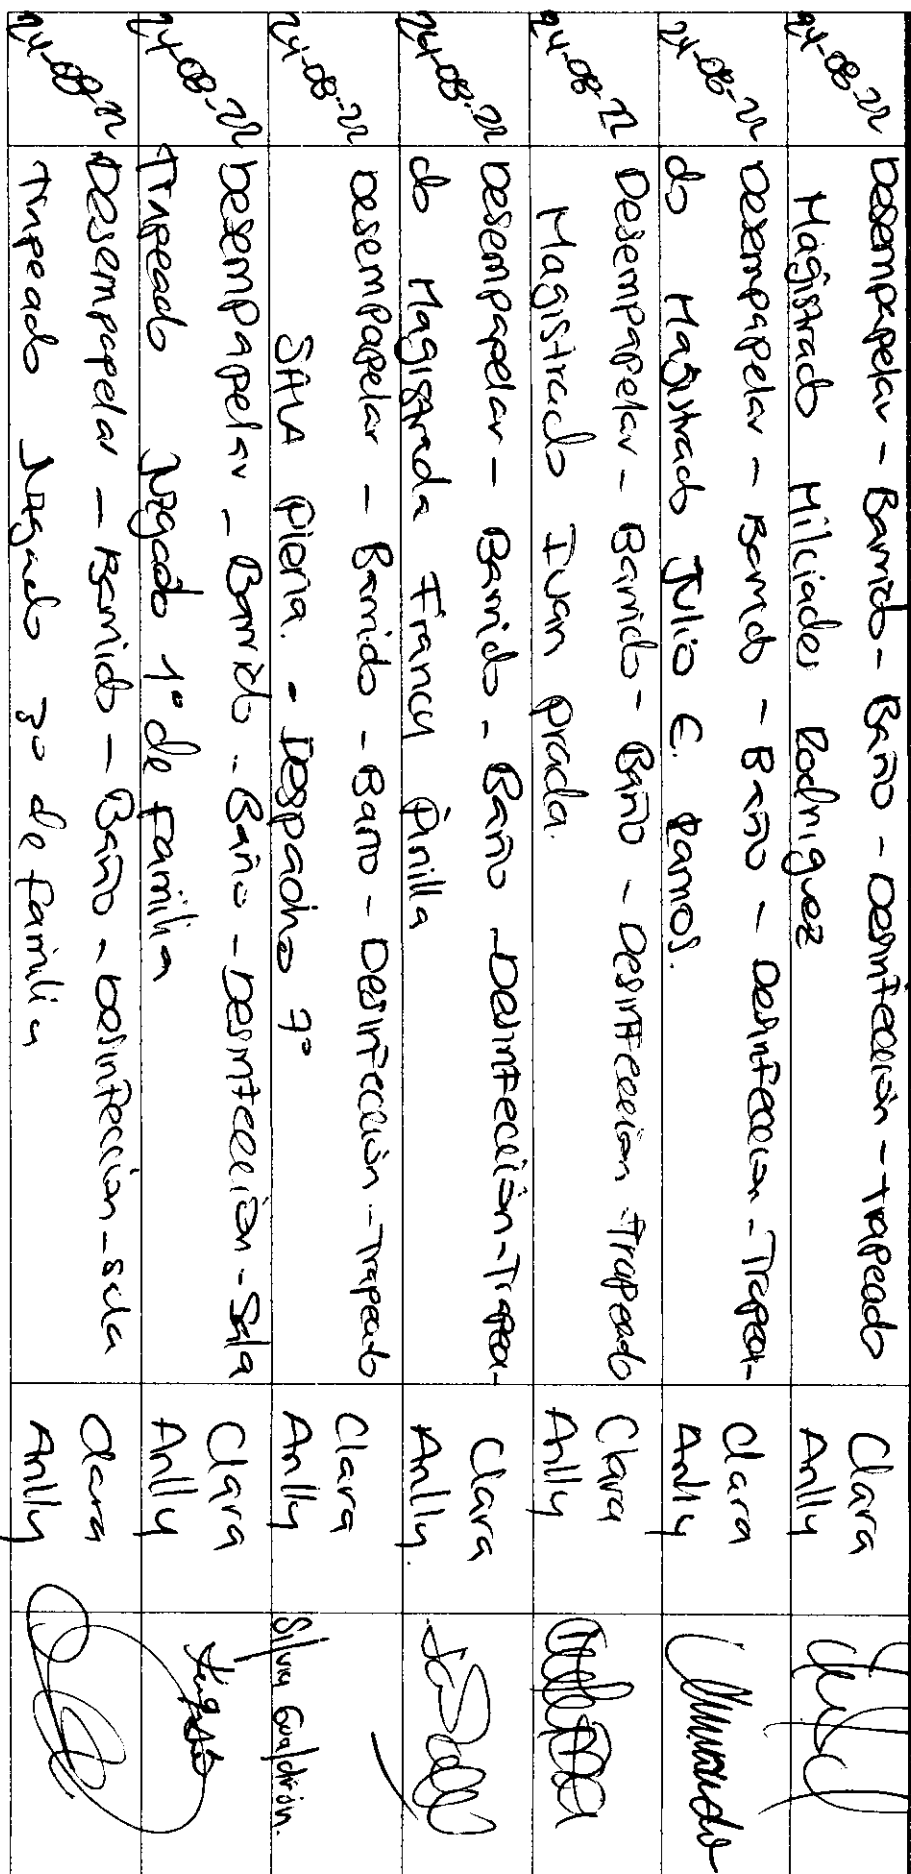 24-08-22 Desempapelar - Barrido - Baño - Desinfección - trapeado Clara
Magistrado Milciades Rodriguez Anlly
24-08-22 Desempapelar - Barrido - Baño - Desinfeccion - Trapea- Clara
do Magistrado Julio C. Ramos. Anlly
24-08-22 Desempapelar - Barrido - Baño - Desinfeccion - Trapeado Clara
Magistrado Ivan prada. Anlly
24-08-22 Desempapelar - Barrido - Baño - Desinfección - Trapea- Clara
do Magistrada Francy Pinilla Anlly.
24-08-22 Desempapelar - Barrido - Baño - Desinfección - Trapeado Clara Silvia Gualdrón.
SALA Pleria. - Despacho 7° Anlly
24-08-22 Desempapelar - Barrido - Baño - Desinfección - Sala Clara
Trapeado Juzgado 1° de Familia Anlly
24-08-22 Desempapelar - Barrido - Baño - Desinfección - sala Clara
Trapeado Juzgado 3° de familia Anlly